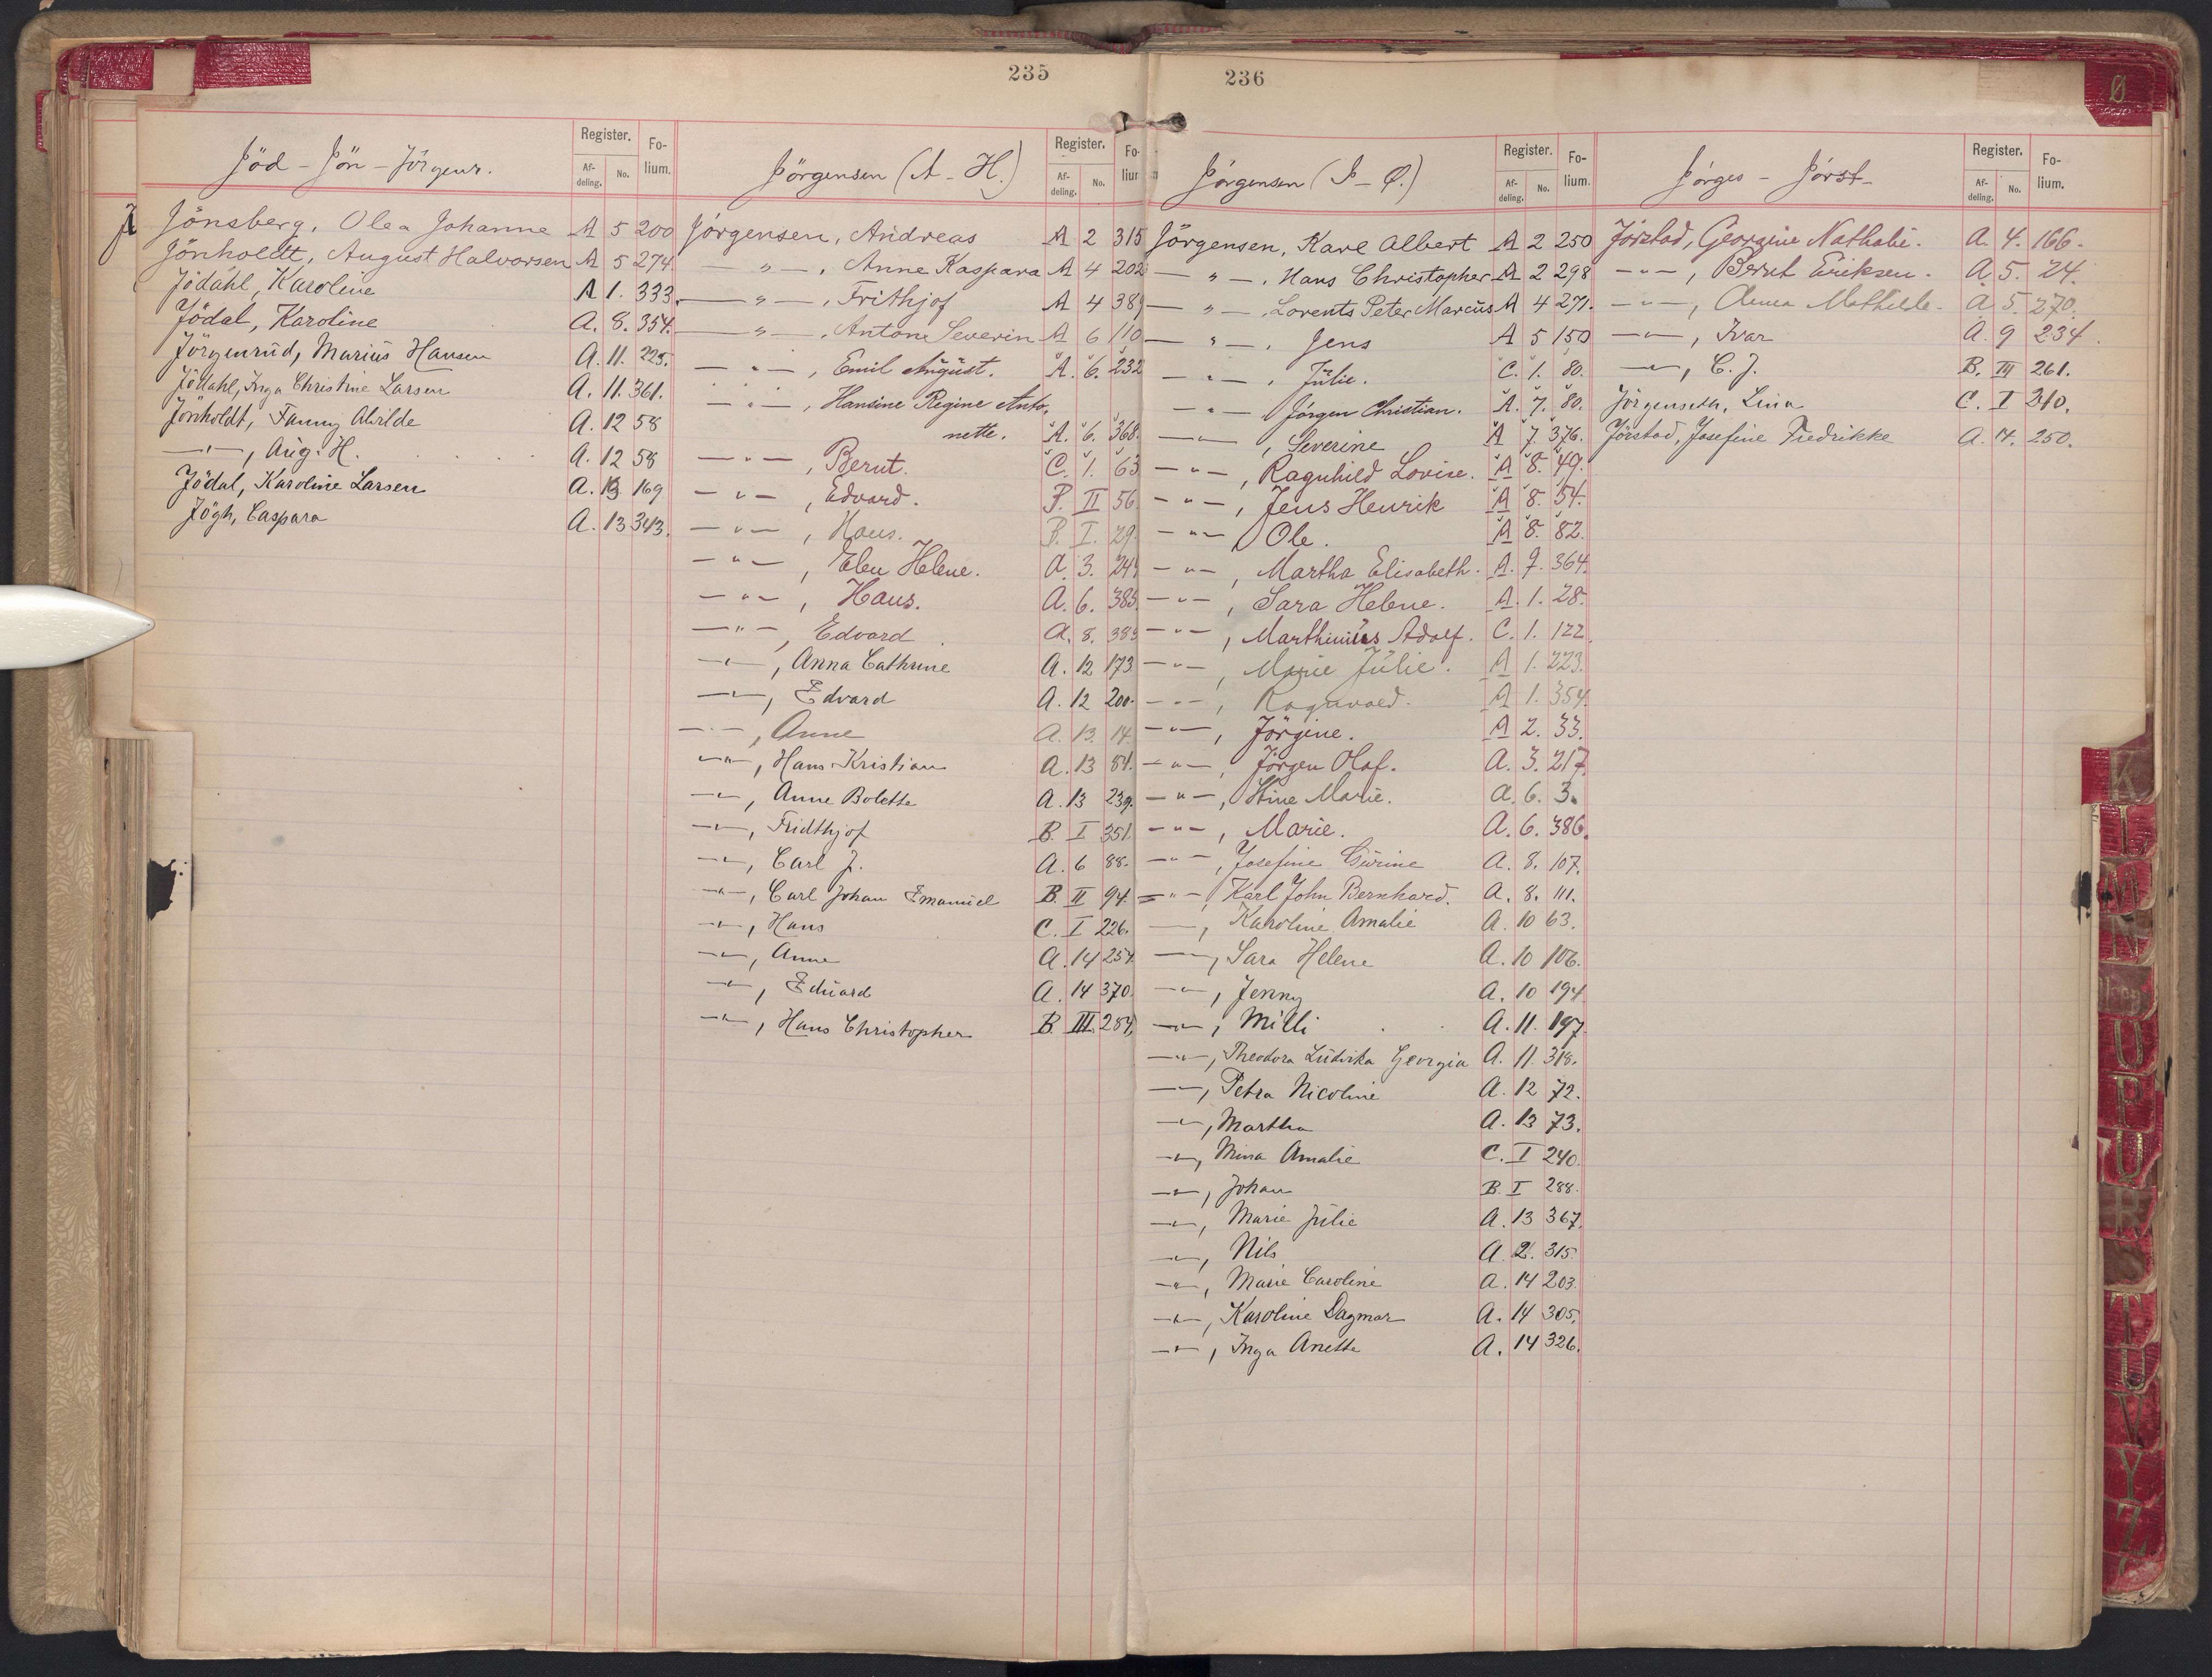 235
Jöd - Jön - Jörgenr.
Register. Folium.
Afdeling. No.
Jönsberg, Olea Johanne A 5 200
Jönholdt, August Halvorsen A 5 274.
Jödahl, Karoline A 1. 333.
Jödal, Karoline A. 8. 354.
Jörgenrud, Marius Hansen A. 11. 225.
Jödahl, Inga Christine Larsen A. 11. 361.
Jönholdt, Fanny Alvilde A. 12 58
—"—, Aug. H. A. 12 58
Jödal, Karoline Larsen A. 13 169
Jögh, Caspara A. 13 343.
Jörgensen (A - H.)
Register. Fo-
Afdeling. No.
Jörgensen, Andreas A 2 315
—"—, Anne Kaspara A 4 202
—"—, Frithjof A 4 389
—"—, Anton Severin A 6 110
—"—, Emil August. A. 6. 232
—"—, Hansine Regine Anto-
nette. A. 6. 368.
—"—, Bernt. C. 1. 63
—"—, Edvard. B. II 56
—"—, Hans. B. I. 29.
—"—, Elen Helene. A. 3. 244
—"—, Hans. A. 6. 385.
—"—, Edvard A. 8. 383
—"—, Anna Cathrine A. 12 173
—"—, Edvard A. 12 200.
—"—, Anne A. 13. 14.
—"—, Hans Kristian A. 13 84.
—"—, Anne Bolette A. 13 239.
—"—, Fridthjof B. I 351.
—"—, Carl J. A. 6 88.
—"—, Carl Johan Emanuel B. II 94.
—"—, Hans C. I 226.
—"—, Anne A. 14 254
—"—, Eduard A. 14 370.
—"—, Hans Christopher B. III. 284,
236
Jörgensen (I - Ø.)
Register. Folium.
Afdeling. No.
Jörgensen, Karl Albert A 2 250
—"—, Hans Christopher A 2 298
—"—, Lorents Peter Marcus A 4 271.
—"—, Jens A 5 150
—"—, Julie. C. 1. 80.
—"—, Jörgen Christian. A. 7. 80.
—"—, Severine A 7. 376.
—"—, Ragnhild Lovise. A 8. 49.
—"—, Jens Henrik A 8. 54.
—"—, Ole. A 8. 82.
—"—, Martha Elisabeth. A. 9. 364.
—"—, Sara Helene. A. 1. 28.
—"—, Marthinius Adolf. C. 1. 122.
—"—, Marie Julie. A 1. 223.
—"—, Ragnvald. A 1. 354.
—"—, Jörgine. A 2. 33.
—"—, Jörgen Olaf. A. 3. 217.
—"—, Stine Marie. A. 6. 3.
—"—, Marie. A. 6. 386.
—"—, Josefine A. 8. 107.
—"—, Karl John Bernhard. A. 8. 111.
—"—, Karoline Amalie A. 10 63.
—"—, Sara Helene A. 10 106.
—"—, Jenny A. 10 194
—"—, Milli A. 11. 197.
—"—, Theodora Ludvika Georgia A. 11. 318.
—"—, Petra Nicoline A. 12 72.
—"—, Martha A. 13 73.
—"—, Mina Amalie C. I 240.
—"—, Johan B. I 288.
—"—, Marie Julie A. 13 367.
—"—, Nils A. 2. 315.
—"—, Marie Caroline A. 14 203.
—"—, Karoline Dagmar A. 14 305.
—"—, Inga Anette A. 14 326.
Jörges - Jörst-
Register. Folium.
Afdeling. No.
Jörstad, Georgine Nathalie. A. 4. 166.
—"—, Bernt Eriksen. A. 5. 24.
—"—, Anna Mathilde. A. 5. 270.
—"—, Ivar A. 9 234.
—"—, C. J. B. III 261.
Jörgenseth, Lina C. I 210.
Jörstad, Josefine Fredrikke A. 14. 250.
Ø
K
L
M
N
Olsen
P
R
T
U
V
Y
Z